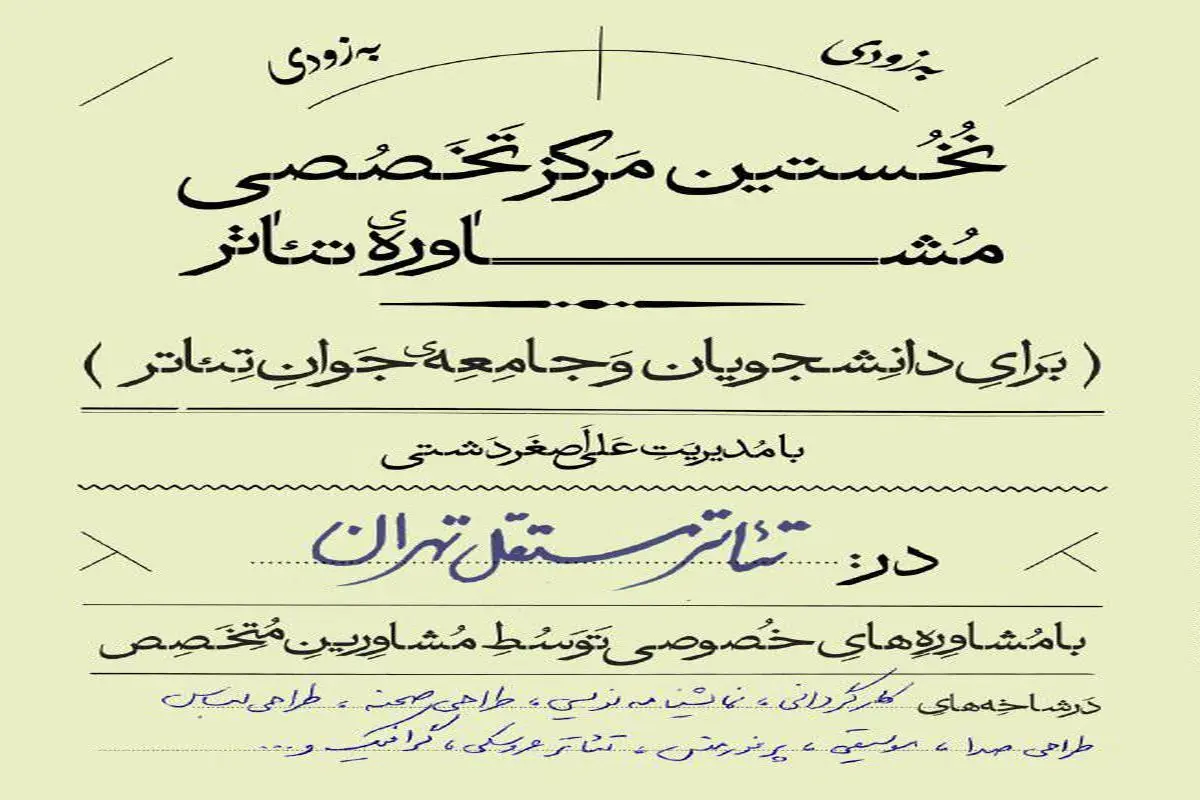 به زودی به زودی
نُخُستین مَرکز تَخَصُصی
مُشاوره‌ٔی تئاتر
( بَرایِ دانِشجویان وَ جامِعِه‌ی جَوانِ تِئاتر )
با مُدیریَتِ عَلی اَصغَر دَشتی
در: تئاتر مستقل تهران
با مُشاوِرِه‌هایِ خُصوصی تَوَسُطِ مُشاوِرینِ مُتِخَصِص
دَر شاخِه‌های کارگردانی، نمایشنامه نویسی، طراحی صحنه، طراحی لباس
طراحی صدا، موسیقی، پرفورمنس، تئاتر عروسکی، گرافیک و...